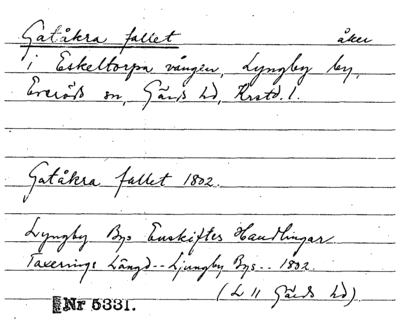 Gatåkra fallet åker
i Eskeltorpa vången, Lyngby by,
Everöds sn, Gärds hd, Krstd. l.
Gatåkra fallet 1802.
Lyngby Bys Enskiftes Handlingar
Taxerings Längd -- Ljungby Bys -- 1802.
(L 11 Gärds hd)
Nr 5331.